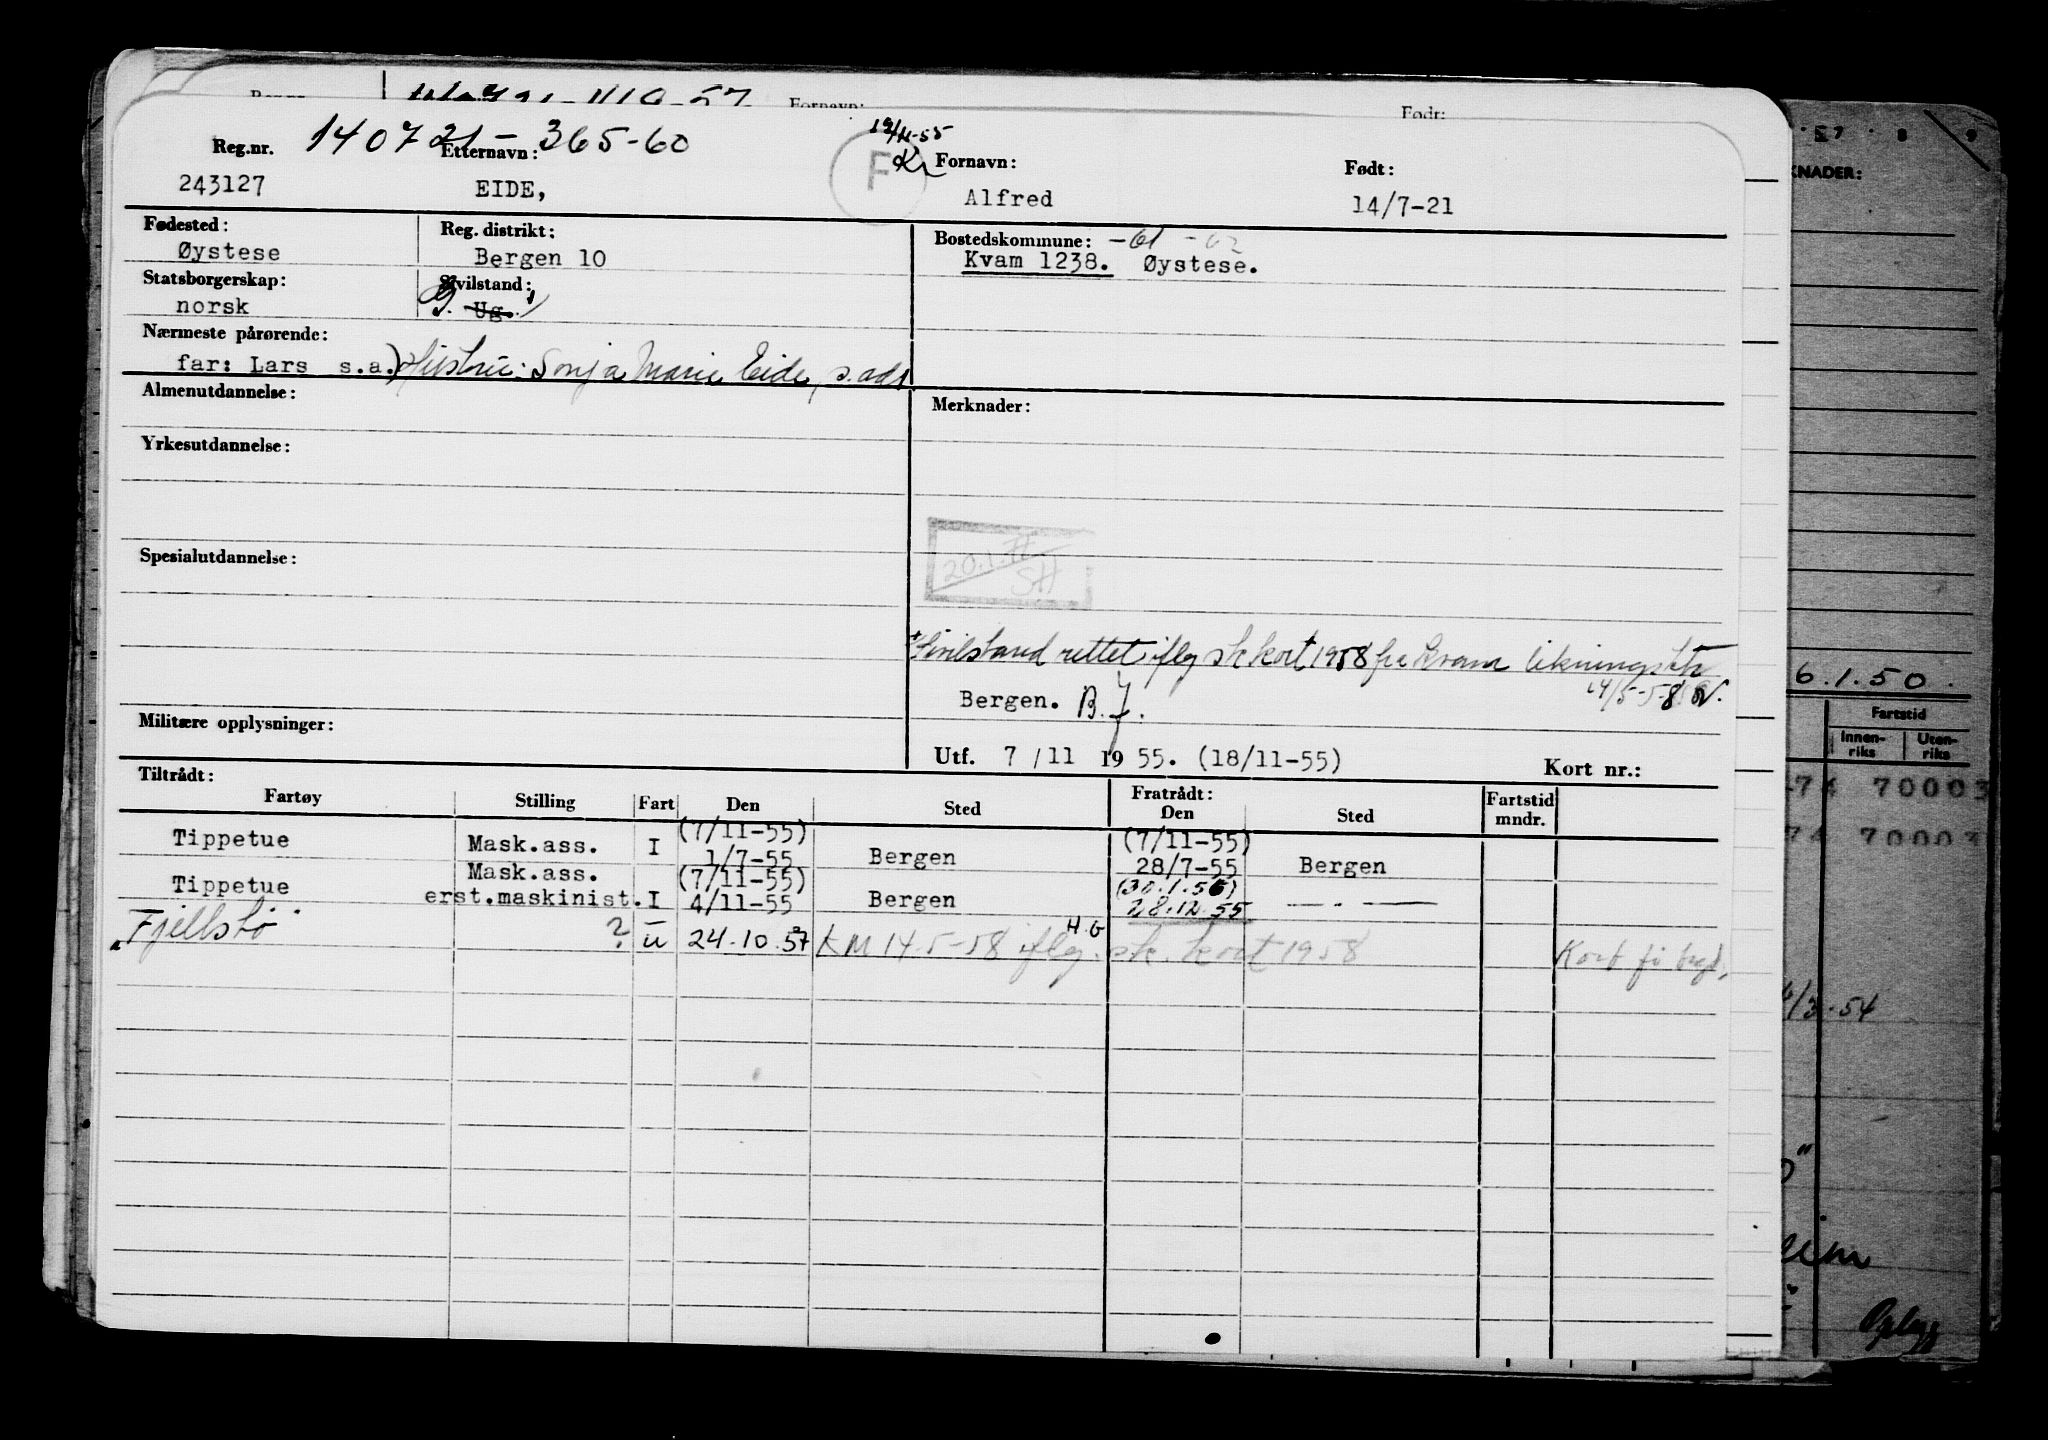 Fornavn: Født:
140721-365-60 19/11-55
Reg.nr. Etternavn: F Kr Fornavn: Født:
243127 EIDE, Alfred 14/7-21
Fødested: Reg. distrikt: Bostedskommune: -61 -62
Øystese Bergen 10 Kvam 1238. Øystese.
Statsborgerskap: Sivilstand:
norsk g. Ug. 1)
Nærmeste pårørende:
far: Lars s.a.) Hustru: Sonja Marie Eide, s. adr.
Almenutdannelse: Merknader:
Yrkesutdannelse:
Spesialutdannelse:
20.1.
SH
1) Sivilstand rettet iflg sk kort 1958 fra Kvam likningsktr
14/5-58
Bergen. B.J.
Militære opplysninger:
Utf. 7/11 1955. (18/11-55) Kort nr.:
Tiltrådt: Fratrådt:
Fartøy Stilling Fart Den Sted Den Sted Fartstid mndr.
(7/11-55) (7/11-55)
Tippetue Mask.ass. I 1/7-55 Bergen 28/7-55 Bergen
Mask.ass. (7/11-55) (30.1.56)
Tippetue erst.maskinist. I 4/11-55 Bergen 28.12.55 — . —
H.G
"Fjellstø" ? u 24.10.57 KM 14.5-58 iflg. sk. kort 1958 Kort
KNADER:
6.1.50.
Fartstid
Innen-riks Uten-riks
74 70003
74 70003
/3-54